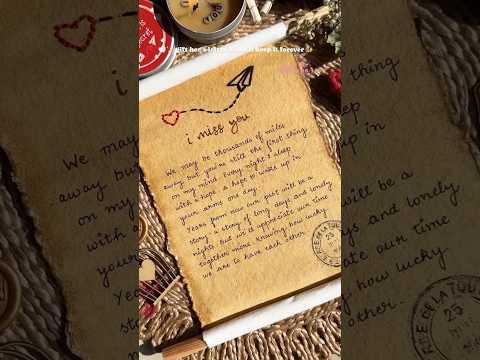 gift her a letter to keep it forever
i miss you
We may be thousands of miles
away but you're still the first thing
on my mind. Every night I sleep
with a hope to wake up in
your arms one day.
Years from now our past will be a
story - a story of long days and lonely
nights. But we'll appreciate our time
together more knowing how lucky
we are to have each other.
DE LA TOU
25